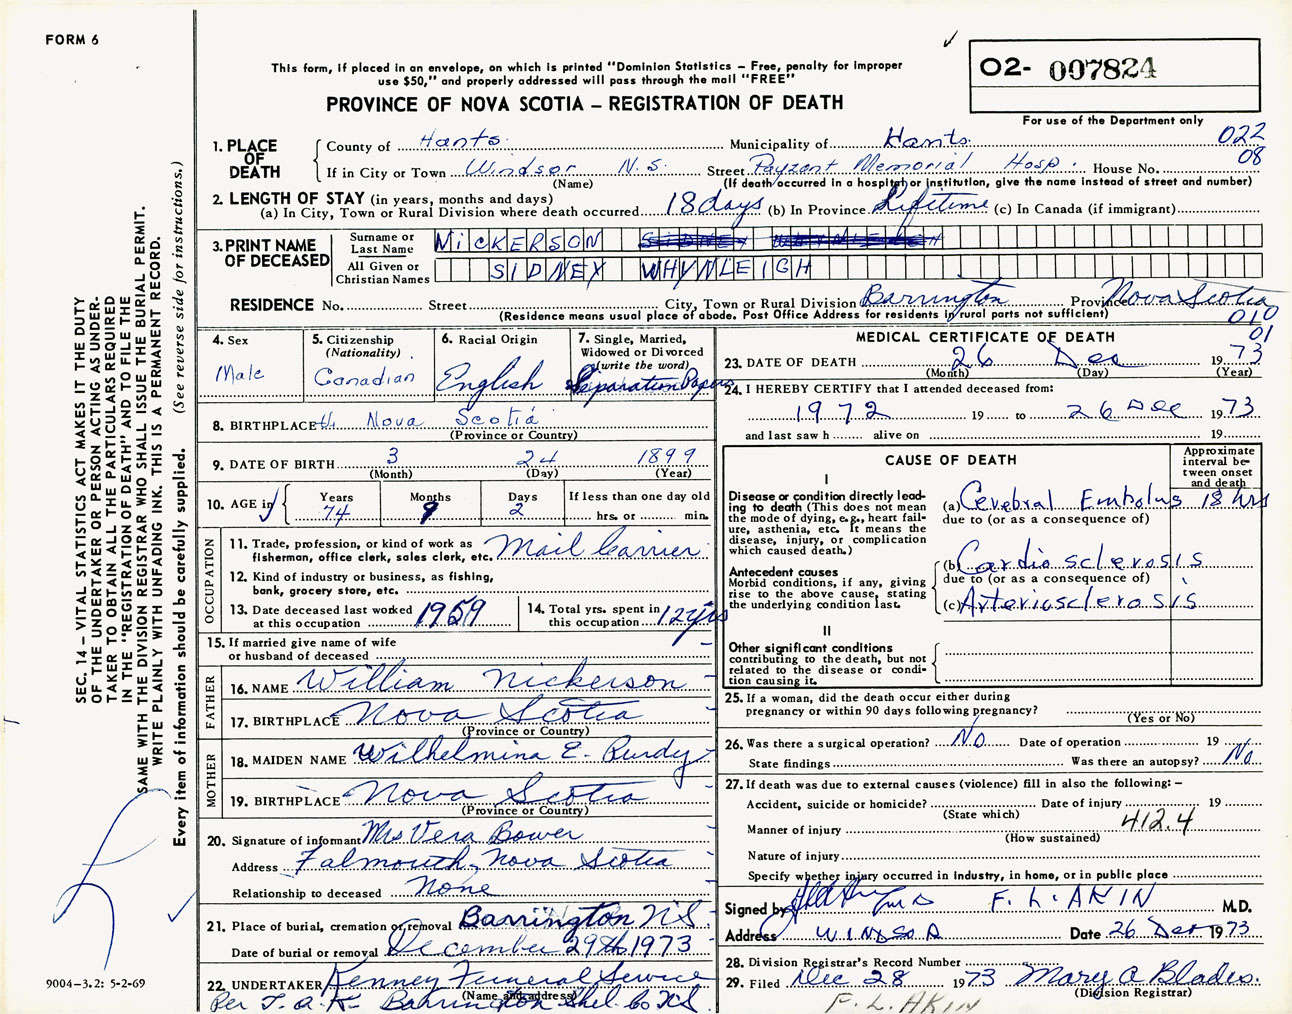 FORM 6
This form, if placed in an envelope, on which is printed "Dominion Statistics – Free, penalty for improper
use $50," and properly addressed will pass through the mail "FREE"
PROVINCE OF NOVA SCOTIA – REGISTRATION OF DEATH
O2- 007824
For use of the Department only
022
08
SEC. 14 – VITAL STATISTICS ACT MAKES IT THE DUTY
OF THE UNDERTAKER OR PERSON ACTING AS UNDER-
TAKER TO OBTAIN ALL THE PARTICULARS REQUIRED
IN THE "REGISTRATION OF DEATH" AND TO FILE THE
SAME WITH THE DIVISION REGISTRAR WHO SHALL ISSUE THE BURIAL PERMIT.
WRITE PLAINLY WITH UNFADING INK. THIS IS A PERMANENT RECORD.
Every item of information should be carefully supplied. (See reverse side for instructions.)
1. PLACE OF DEATH
County of Hants Municipality of Hants
If in City or Town Windsor N.S. Street Payzant Memorial Hosp. House No.
(Name) (If death occurred in a hospital or institution, give the name instead of street and number)
2. LENGTH OF STAY (in years, months and days)
(a) In City, Town or Rural Division where death occurred 18 days (b) In Province Lifetime (c) In Canada (if immigrant)
3. PRINT NAME OF DECEASED
Surname or Last Name NICKERSON
All Given or Christian Names SIDNEY WHYNLEIGH
RESIDENCE No. Street City, Town or Rural Division Barrington Province Nova Scotia
(Residence means usual place of abode. Post Office Address for residents in rural parts not sufficient)
010
01
4. Sex Male
5. Citizenship (Nationality) Canadian
6. Racial Origin English
7. Single, Married, Widowed or Divorced (write the word) Separation Papers
8. BIRTHPLACE Nova Scotia
(Province or Country)
9. DATE OF BIRTH 3 24 1899
(Month) (Day) (Year)
10. AGE in Years 74 Months 9 Days 2 If less than one day old
hrs. or min.
OCCUPATION
11. Trade, profession, or kind of work as fisherman, office clerk, sales clerk, etc. Mail Carrier
12. Kind of industry or business, as fishing, bank, grocery store, etc.
13. Date deceased last worked at this occupation 1959
14. Total yrs. spent in this occupation 12 yrs
15. If married give name of wife or husband of deceased
FATHER
16. NAME William Nickerson
17. BIRTHPLACE Nova Scotia
(Province or Country)
MOTHER
18. MAIDEN NAME Wilhelmina E. Purdy
19. BIRTHPLACE Nova Scotia
(Province or Country)
20. Signature of informant Mrs Vera Bower
Address Falmouth, Nova Scotia
Relationship to deceased None
21. Place of burial, cremation or removal Barrington N.S.
Date of burial or removal December 29th 1973
22. UNDERTAKER Kenney Funeral Service
(Name and address)
Per T. A. K. Barrington Shel. Co N.S.
9004-3.2: 5-2-69
MEDICAL CERTIFICATE OF DEATH
23. DATE OF DEATH 26 Dec 1973
(Month) (Day) (Year)
24. I HEREBY CERTIFY that I attended deceased from:
1972 19 to 26 Dec 1973
and last saw h alive on 19
CAUSE OF DEATH
Approximate interval between onset and death
I
Disease or condition directly leading to death (This does not mean the mode of dying, e.g., heart failure, asthenia, etc. It means the disease, injury, or complication which caused death.)
(a) Cerebral Embolus 18 hrs
due to (or as a consequence of)
Antecedent causes
Morbid conditions, if any, giving rise to the above cause, stating the underlying condition last.
(b) Cardio sclerosis
due to (or as a consequence of)
(c) Arteriosclerosis
II
Other significant conditions contributing to the death, but not related to the disease or condition causing it.
25. If a woman, did the death occur either during pregnancy or within 90 days following pregnancy?
(Yes or No)
26. Was there a surgical operation? No Date of operation 19
State findings Was there an autopsy? No
27. If death was due to external causes (violence) fill in also the following: –
Accident, suicide or homicide? Date of injury 19
(State which)
Manner of injury 412.4
(How sustained)
Nature of injury
Specify whether injury occurred in Industry, in home, or in public place
Signed by F. L. AKIN M.D.
Address WINDSOR Date 26 Dec 1973
28. Division Registrar's Record Number
29. Filed Dec 28 1973 Mary A Blades.
(Division Registrar)
F. L. AKIN